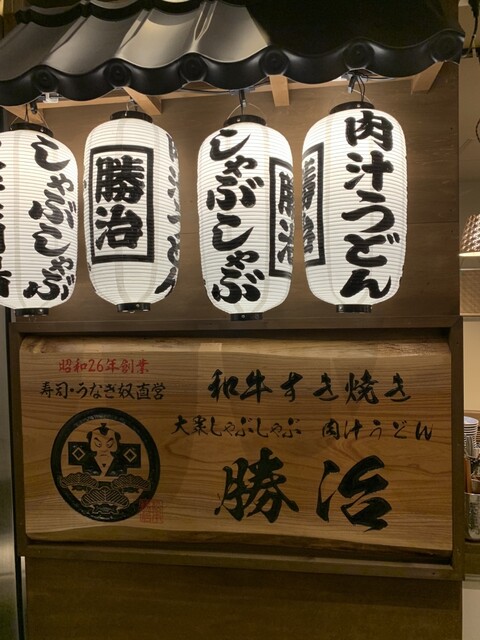 しゃぶしゃぶ
勝治
肉汁うどん
しゃぶしゃぶ
勝治
勝治
肉汁うどん
昭和26年創業
寿司・うなぎ奴直営
和牛すき焼き
大衆しゃぶしゃぶ 肉汁うどん
勝治